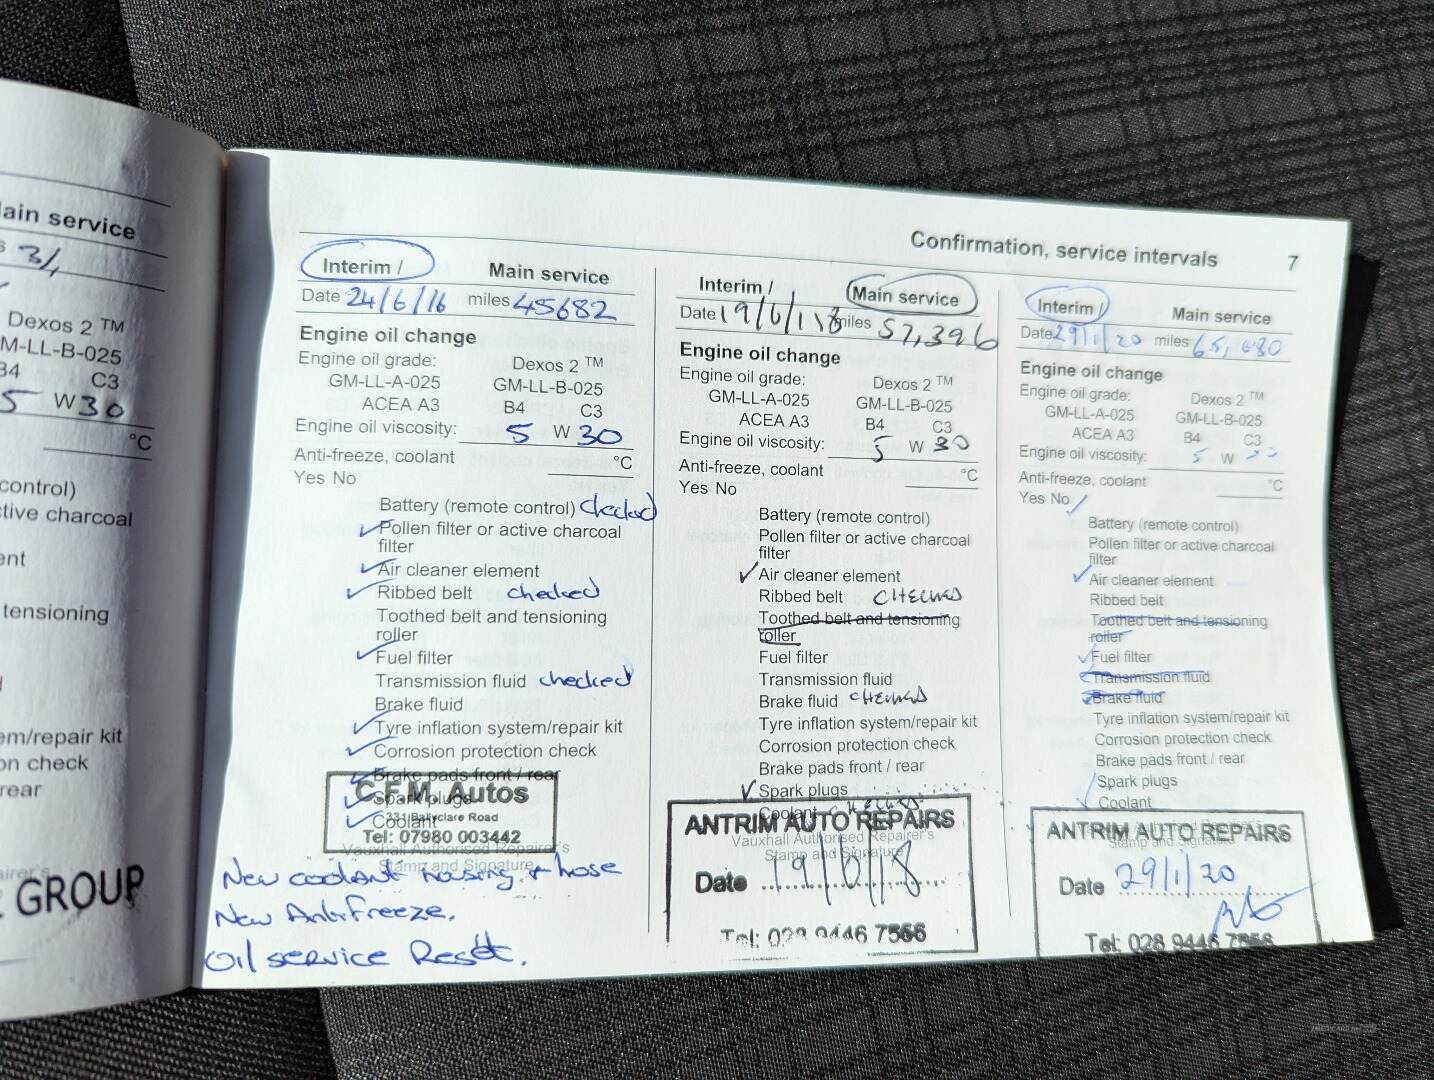 ain service
3/
Dexos 2 TM
M-LL-B-025
B4 C3
5 W 30
°C
control)
tive charcoal
ent
tensioning
em/repair kit
on check
rear
GROUP
Confirmation, service intervals 7
Interim / Main service
Date 24/6/16 miles 45682
Engine oil change
Engine oil grade: Dexos 2 TM
GM-LL-A-025 GM-LL-B-025
ACEA A3 B4 C3
Engine oil viscosity: 5 W 30
Anti-freeze, coolant °C
Yes No
Battery (remote control) checked
Pollen filter or active charcoal
filter
Air cleaner element
Ribbed belt checked
Toothed belt and tensioning
roller
Fuel filter
Transmission fluid checked
Brake fluid
Tyre inflation system/repair kit
Corrosion protection check
Brake pads front / rear
Spark plugs
Coolant
C.F.M. Autos
331 Ballyclare Road
Tel: 07980 003442
Vauxhall Authorised Repairer's
Stamp and Signature
New coolant housing + hose
New Antifreeze.
Oil service Reset.
Interim / Main service
Date 19/6/18 miles 57,396
Engine oil change
Engine oil grade: Dexos 2 TM
GM-LL-A-025 GM-LL-B-025
ACEA A3 B4 C3
Engine oil viscosity: 5 W 30
Anti-freeze, coolant °C
Yes No
Battery (remote control)
Pollen filter or active charcoal
filter
Air cleaner element
Ribbed belt CHECKED
Toothed belt and tensioning
roller
Fuel filter
Transmission fluid
Brake fluid CHECKED
Tyre inflation system/repair kit
Corrosion protection check
Brake pads front / rear
Spark plugs
Coolant CHECKED
ANTRIM AUTO REPAIRS
Vauxhall Authorised Repairer's
Stamp and Signature
Date 19/6/18
Tel: 028 9446 7566
Interim / Main service
Date 29/1/20 miles 65,
Engine oil change
Engine oil grade: Dexos 2 TM
GM-LL-A-025 GM-LL-B-025
ACEA A3 B4 C3
Engine oil viscosity: 5 W
Anti-freeze, coolant °C
Yes No
Battery (remote control)
Pollen filter or active charcoal
filter
Air cleaner element
Ribbed belt
Toothed belt and tensioning
roller
Fuel filter
Transmission fluid
Brake fluid
Tyre inflation system/repair kit
Corrosion protection check
Brake pads front / rear
Spark plugs
Coolant
ANTRIM AUTO REPAIRS
Stamp and Signature
Date 29/1/20
Tel: 028 9446 7566